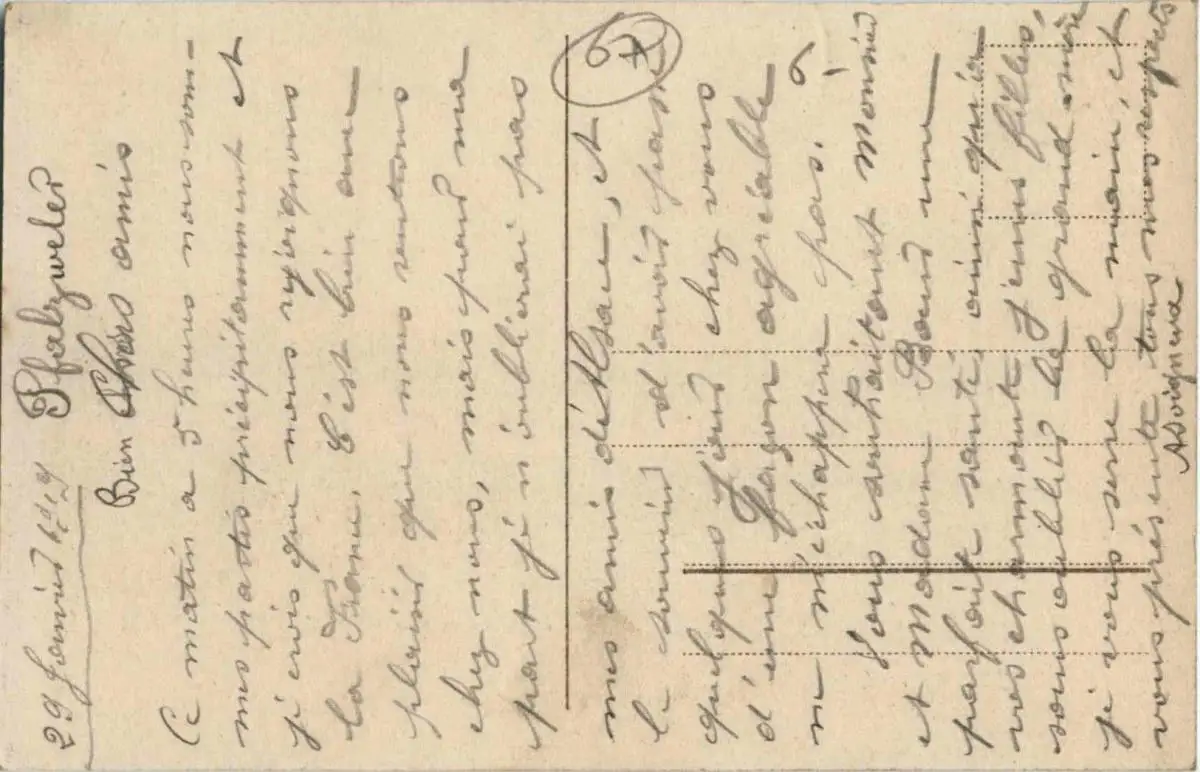 29 Janvier 1919 Pfalzweier
Bien Chers amis
Ce matin a 5 heures nous som-
mes partis précipitamment et
je crois que nous rejoignons
la France. C'est bien avec
plaisir que nous rentrons
chez nous, mais pour ma
part je n'oublierai pas
mes amis d'Alsace, et
le souvenir d'avoir passé
quelques jours chez vous
d'une façon agréable
ne m'échappera pas.
Vous souhaitant
et Madame une
parfaite santé, ainsi qu'a
vos charmante jeunes filles,
sans oublier la grand mère
je vous serre la main, et
vous présente tous mes respects